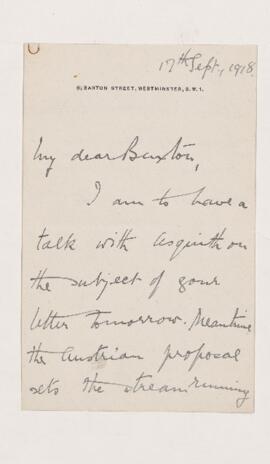 17th Sept, 1918.
BARTON STREET, WESTMINSTER, S.W.1.
My dear Buxton,
I am to have a
talk with Asquith on
the subject of your
letter tomorrow. Meantime
the Austrian proposal
sets the stream running